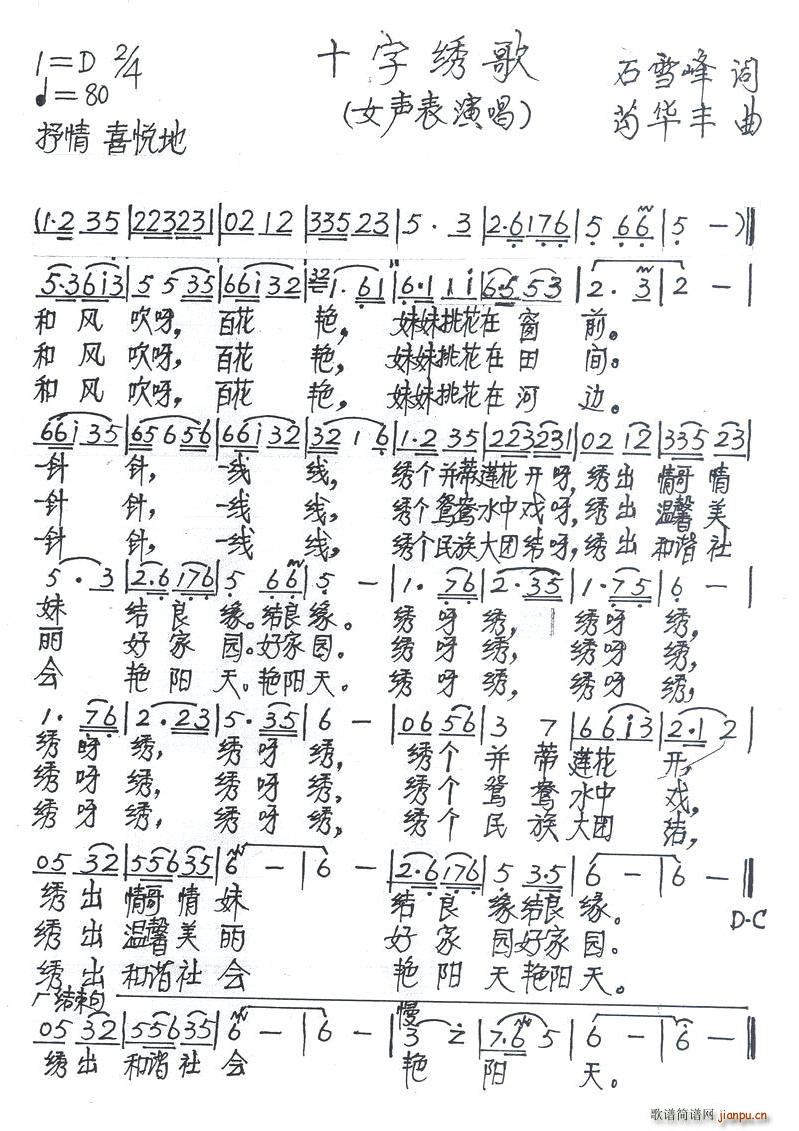 十字绣歌
(女声表演唱)
1=D 2/4
♩=80
抒情 喜悦地
石雪峰 词
苟华丰 曲
(1·2 35|22323|02 12|33523|5· 3|2·6176|5 66|5 —)‖
5·36i3|5 5 35|66i32|32 1· 61|6·11i|6·5 53|2· 3|2 —|
和 风 吹呀, 百花 艳, 妹妹挑花在 窗 前。
和 风 吹呀, 百花 艳, 妹妹挑花在 田 间。
和 风 吹呀, 百花 艳, 妹妹挑花在 河 边。
66i35|65656|66i32|32 1 6|1·2 35|223231|02 12|335 23|
一针 针, 一线 线, 绣个并蒂莲花开呀,绣出 情哥 情
一针 针, 一线 线, 绣个鸳鸯水中戏呀,绣出 温馨 美
一针 针, 一线 线, 绣个民族大团结呀,绣出 和谐 社
5· 3|2·6176|5 66|5 —|1· 76|2·35|1·75|6 —|
妹 结良 缘。结良缘。 绣呀 绣, 绣呀 绣,
丽 好家 园。好家园。 绣呀 绣, 绣呀 绣,
会 艳阳 天。艳阳天。 绣呀 绣, 绣呀 绣,
1· 76|2·23|5·35|6 —|06 56|3 7|66i3|2·1 2|
绣 呀 绣, 绣 呀 绣, 绣个 并 蒂 莲花 开,
绣 呀 绣, 绣 呀 绣, 绣个 鸳 鸯 水中 戏,
绣 呀 绣, 绣 呀 绣, 绣个 民 族 大团 结,
05 32|55635|6 —|6 —|2·6176|5 3·5|6 —|6 —‖
绣 出 情哥 情 妹 结 良 缘结良 缘。
D·C
绣 出 温馨 美 丽 好 家 园好家 园。
绣 出 和谐 社 会 艳 阳 天艳阳 天。
结束句
慢
05 32|55635|6 —|6 —|3 2|7·6 5|6 —|6 —‖
绣 出 和谐 社 会 艳 阳 天。
歌谱简谱网
jianpu.cn